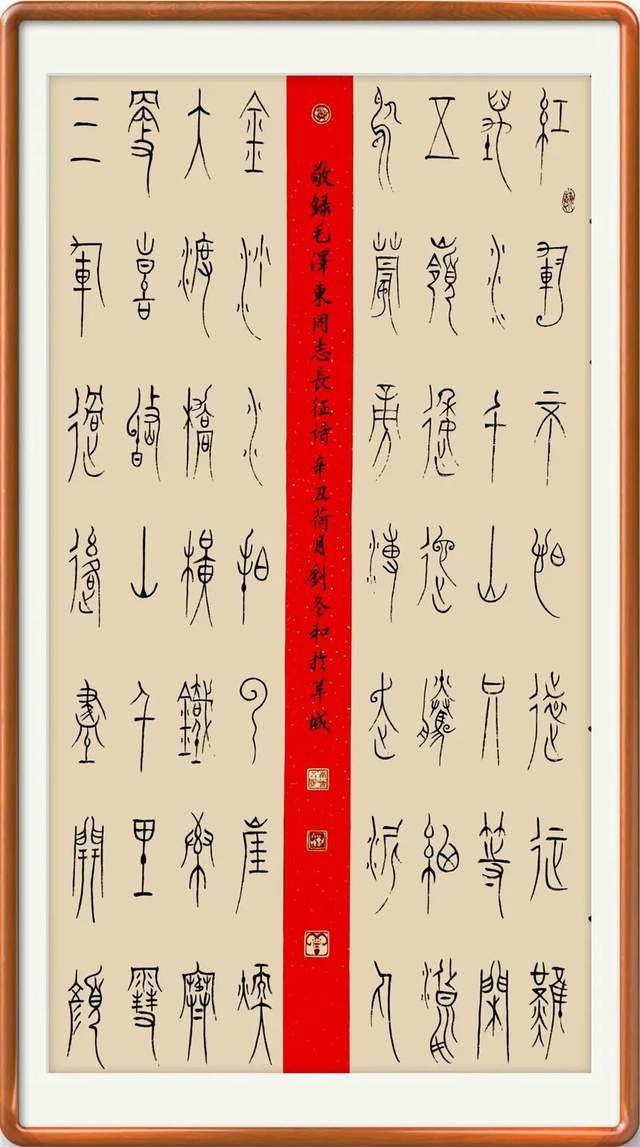 紅軍不怕遠征難
萬水千山只等閑
五嶺逶迤騰細浪
烏蒙旁溥走泥丸
敬錄毛澤東同志長征詩 辛丑荷月劉冬和於羊城
金沙水拍云崖煗
大渡橋橫鐵索寒
更喜岷山千里雪
三軍過後盡開顏